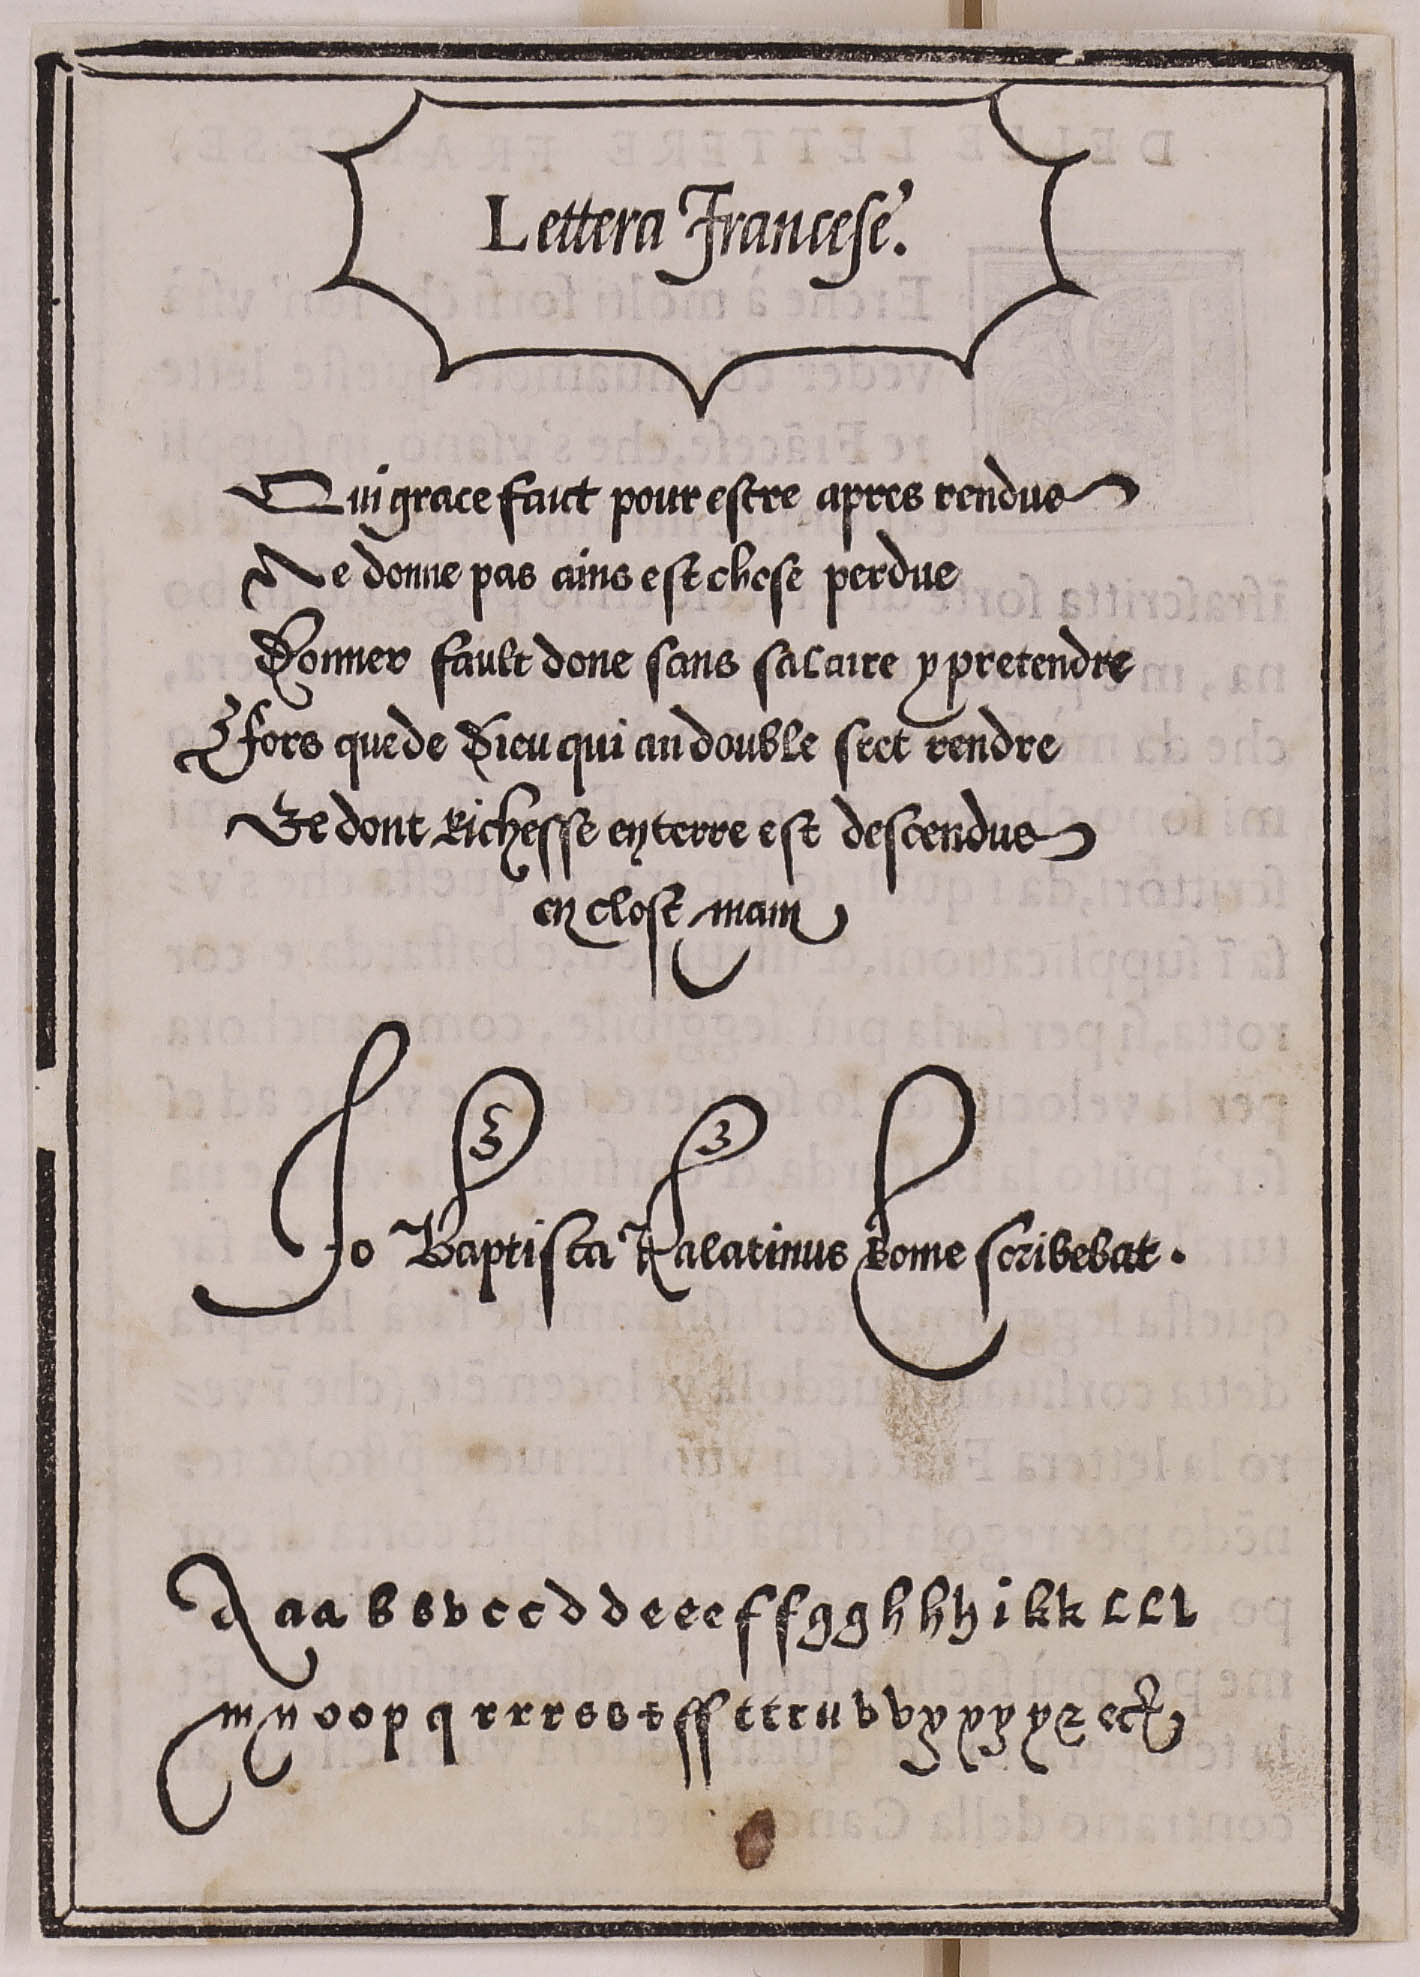 Lettera Francese.
Qui grace faict pour estre apres rendue
Ne donne pas ains est chose perdue
Donner fault donc sans salaire y pretendre
Fors que de Dieu qui au double scet rendre
Ce dont Richesse en terre est descendue
en close main
Jo Baptista Palatinus Rome scribebat.
A a a b b b c c d d e e e f f g g h h h i k k l l l
m n o o p q r r r s s s ss t t t u v v y y y y z &